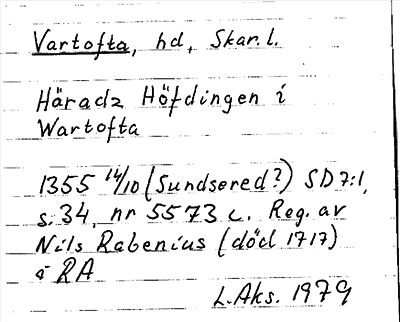 Vartofta, hd, Skar.l.
Häradz Höfdingen i
Wartofta
1355 14/10 (Sundsered?) SD 7:1,
s. 34, nr 5573 c. Reg. av
Nils Rabenius (död 1717)
i RA
L.Aks. 1979